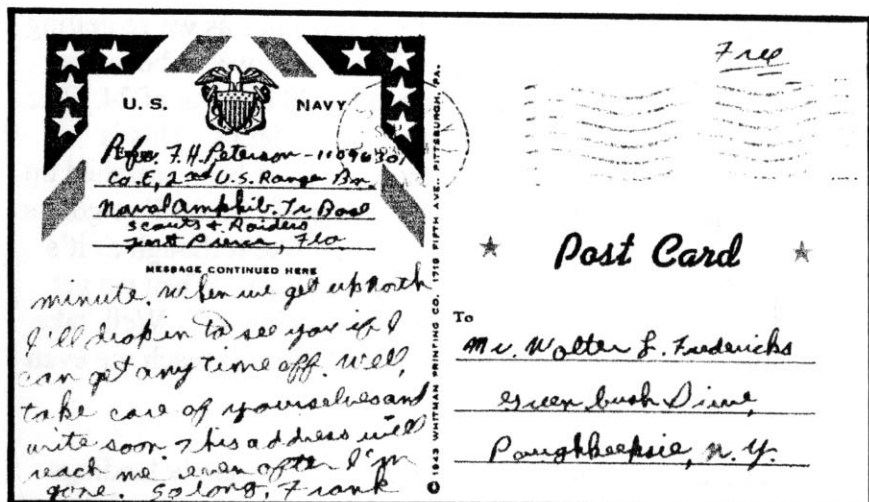 U.S. NAVY
Pfc. F.H. Peterson - 11096301
Co. E, 2nd U.S. Ranger Bn.
Naval Amphib. Tr Base
Scouts & Raiders
Fort Pierce, Fla.
MESSAGE CONTINUED HERE
minute. When we get up north
I'll drop in to see you if I
can get any time off. Well,
take care of yourselves and
write soon. This address will
reach me even after I'm
gone. So long, Frank
© 1943 WHITMAN PRINTING CO. 1719 FIFTH AVE., PITTSBURGH, PA.
Free
Post Card
To
Mr. Walter L. Fredericks
Greenbush Drive,
Poughkeepsie, N.Y.